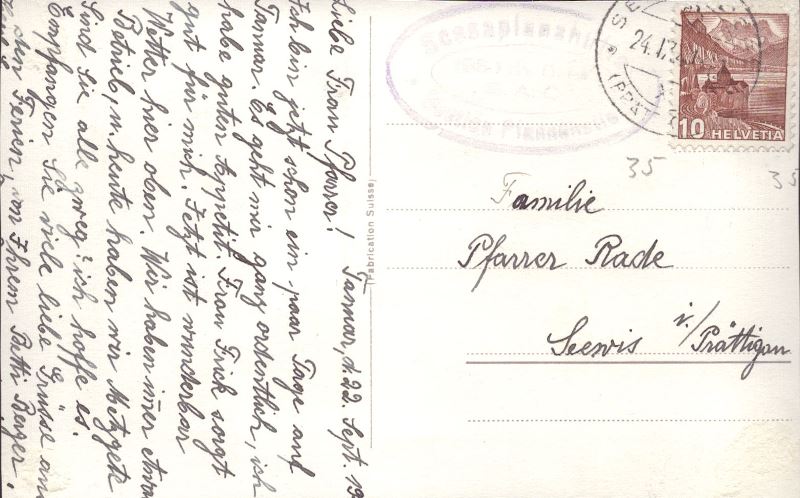 Liebe Frau Pfarrer! Fannar, d. 22. Sept. 19
Ich bin jetzt schon ein paar Tage auf
Fannar. Es geht mir ganz ordentlich, ich
habe guten Appetit. Frau Frick sorgt
gut für mich. Jetzt ist wunderbar
Wetter hier oben. Wir haben immer etwas
Betrieb, n. heute haben wir Metzgete
Sind Sie alle zweg: ich hoffe es.
Empfangen Sie viele liebe Grüsse aus
den Ferien, von Ihrem Betti Berger.
Fabrication Suisse
Scesaplana
24. I
10 HELVETIA
35
35
Familie
Pfarrer Rade
Seewis i/Prättigau